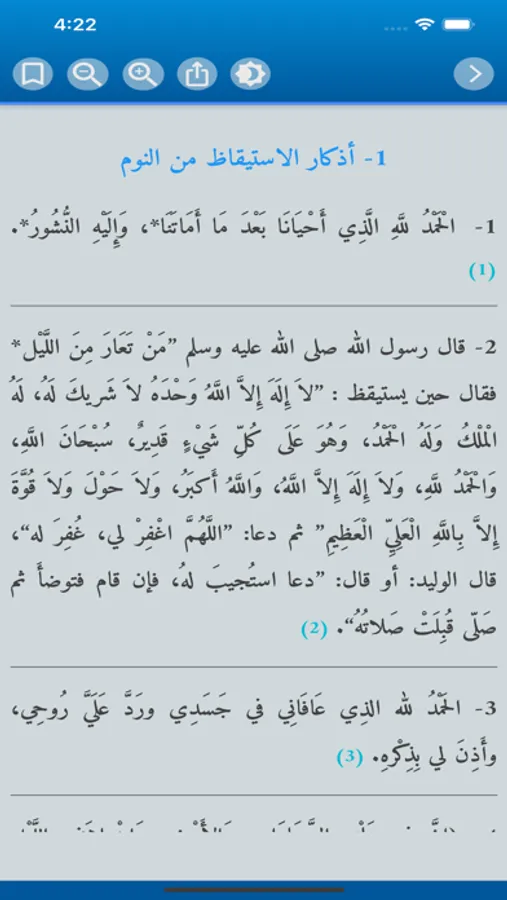 4:22
1- أذكار الاستيقاظ من النوم
1- الْحَمْدُ للَّهِ الَّذِي أَحْيَانَا بَعْدَ مَا أَمَاتَنَا*، وَإِلَيْهِ النُّشُورُ*.
(1)
2- قال رسول الله صلى الله عليه وسلم ”مَنْ تَعَارَ مِنَ اللَّيْل*
فقال حين يستيقظ : ”لاَ إِلَهَ إِلاَّ اللَّهُ وَحْدَهُ لاَ شَرِيكَ لَهُ، لَهُ
الْمُلْكُ وَلَهُ الْحَمْدُ، وَهُوَ عَلَى كُلِّ شَيْءٍ قَدِيرٌ، سُبْحَانَ اللَّهِ،
وَالْحَمْدُ للَّهِ، وَلاَ إِلَهَ إِلاَّ اللَّهُ، وَاللَّهُ أَكبَرُ، وَلاَ حَوْلَ وَلاَ قُوَّةَ
إِلاَّ بِاللَّهِ الْعَلِيِّ الْعَظِيمِ” ثم دعا: ”اللَّهُمَّ اغْفِرْ لي، غُفِرَ له“،
قال الوليد: أو قال: ”دعا استُجيبَ لهُ، فإن قام فتوضأَ ثم
صَلّى قُبِلَتْ صَلاتُهُ“. (2)
3- الحَمْدُ لله الذِي عَافَانِي في جَسَدِي ورَدَّ عَلَيَّ رُوحِي،
وأَذِنَ لي بِذِكْرهِ. (3)